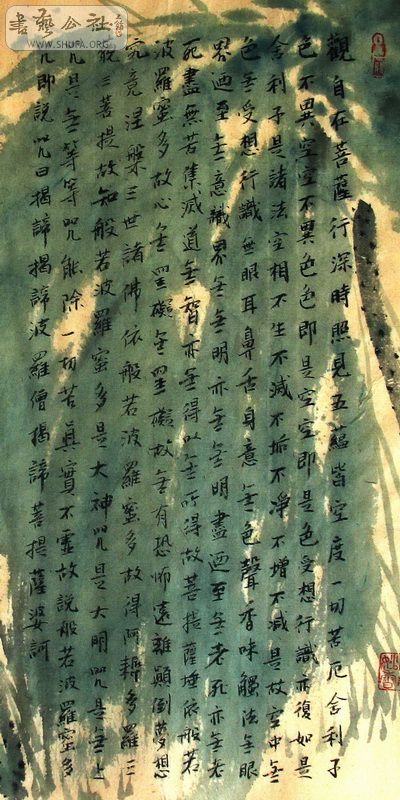 書藝公社
WWW.SHUFA.ORG
觀自在菩薩行深時照見五蘊皆空度一切苦厄舍利子
色不異空空不異色色即是空空即是色受想行識亦復如是
舍利子是諸法空相不生不滅不垢不淨不增不減是故空中無
色無受想行識無眼耳鼻舌身意無色聲香味觸法無眼
界迺至無意識界無無明亦無無明盡迺至無老死亦無老
死盡無苦集滅道無智亦無得以無所得故菩提薩埵依般若
波羅蜜多故心無罣礙無罣礙故無有恐怖遠離顛倒夢想
究竟涅槃三世諸佛依般若波羅蜜多故得阿耨多羅三
藐三菩提故知般若波羅蜜多是大神咒是大明咒是無上
咒是無等等咒能除一切苦真實不虛故說般若波羅蜜多
咒即說咒曰揭諦揭諦波羅僧揭諦菩提薩婆訶